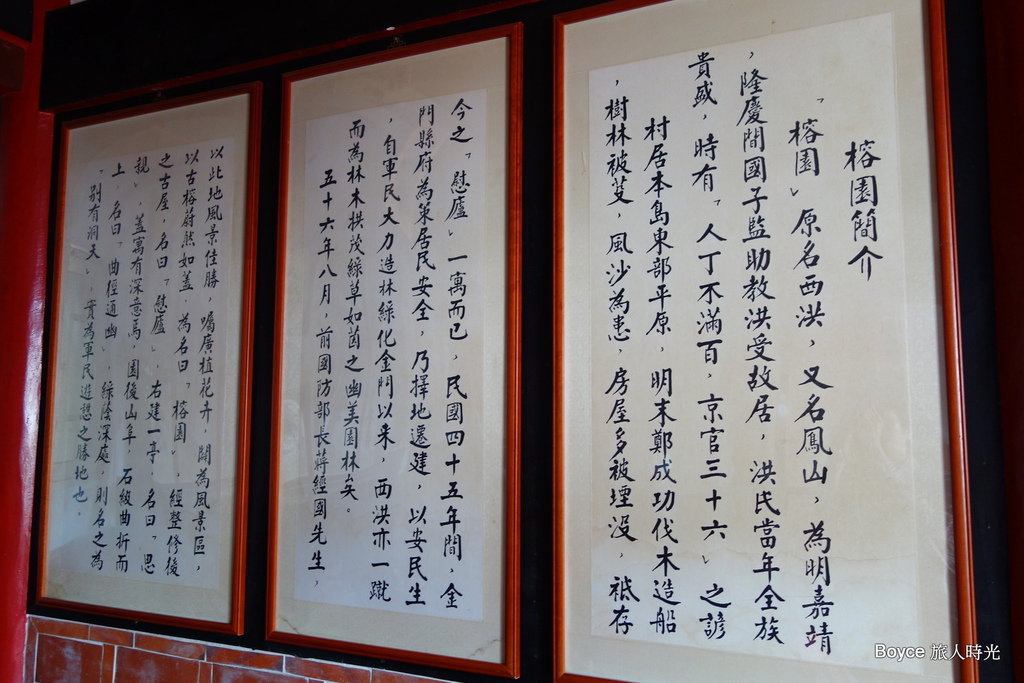 榕園簡介
「榕園」原名西洪，又名鳳山，為明嘉靖
，隆慶間國子監助教洪受故居，洪氏當年全族
貴盛，時有「人丁不滿百，京官三十六」之諺
村居本島東部平原，明末鄭成功伐木造船
，樹林被芟，風沙為患，房屋多被埋沒，祗存
今之「慰廬」一寓而已，民國四十五年間，金
門縣府為策居民安全，乃擇地遷建，以安民生
，自軍民大力造林綠化金門以來，西洪亦一蹴
而為林木拱茂綠草如茵之幽美園林矣。
五十六年八月，前國防部長蔣經國先生，
以此地風景佳勝，囑廣植花卉，闢為風景區，
以古榕蔚然如蓋　為名曰「榕園」，經整修後
之古屋，名曰「慰廬」，右建一亭　名曰「思
親」，蓋寓有深意焉，園後山阜，石級曲折而
上，名曰「曲徑通幽」，綠蔭深處，則名之為
「別有洞天」，實為軍民遊憩之勝地也。
Boyce 旅人時光